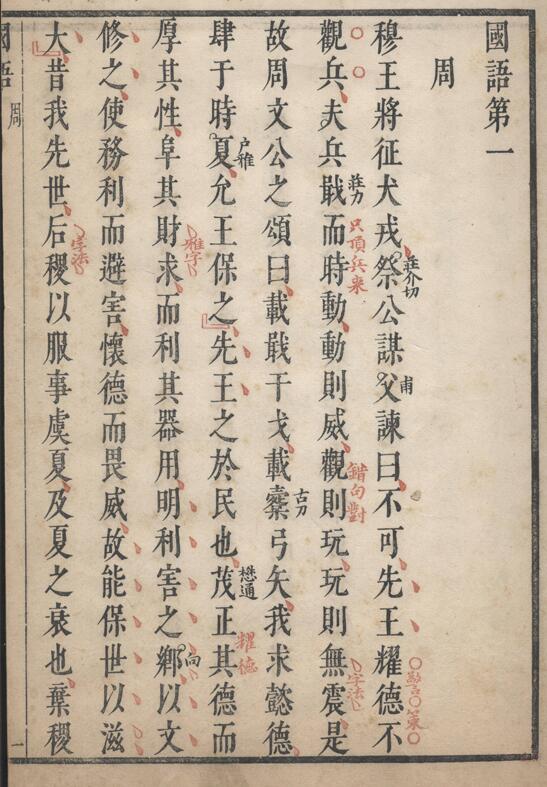 國語第一
周
穆王將征犬戎祭公謀父諫曰不可先王耀德不
莊介切
甫
警言策
觀兵夫兵戢而時動動則威觀則玩玩則無震是
莊力
只頂兵來
錯句對
字法
故周文公之頌曰載戢干戈載櫜弓矢我求懿德
古刀
肆于時夏允王保之先王之於民也茂正其德而
戶雅
懋通
耀德
厚其性阜其財求而利其器用明利害之鄉以文
雅字
向
修之使務利而避害懷德而畏威故能保世以滋
大昔我先世后稷以服事虞夏及夏之衰也棄稷
字法
國語
周
一